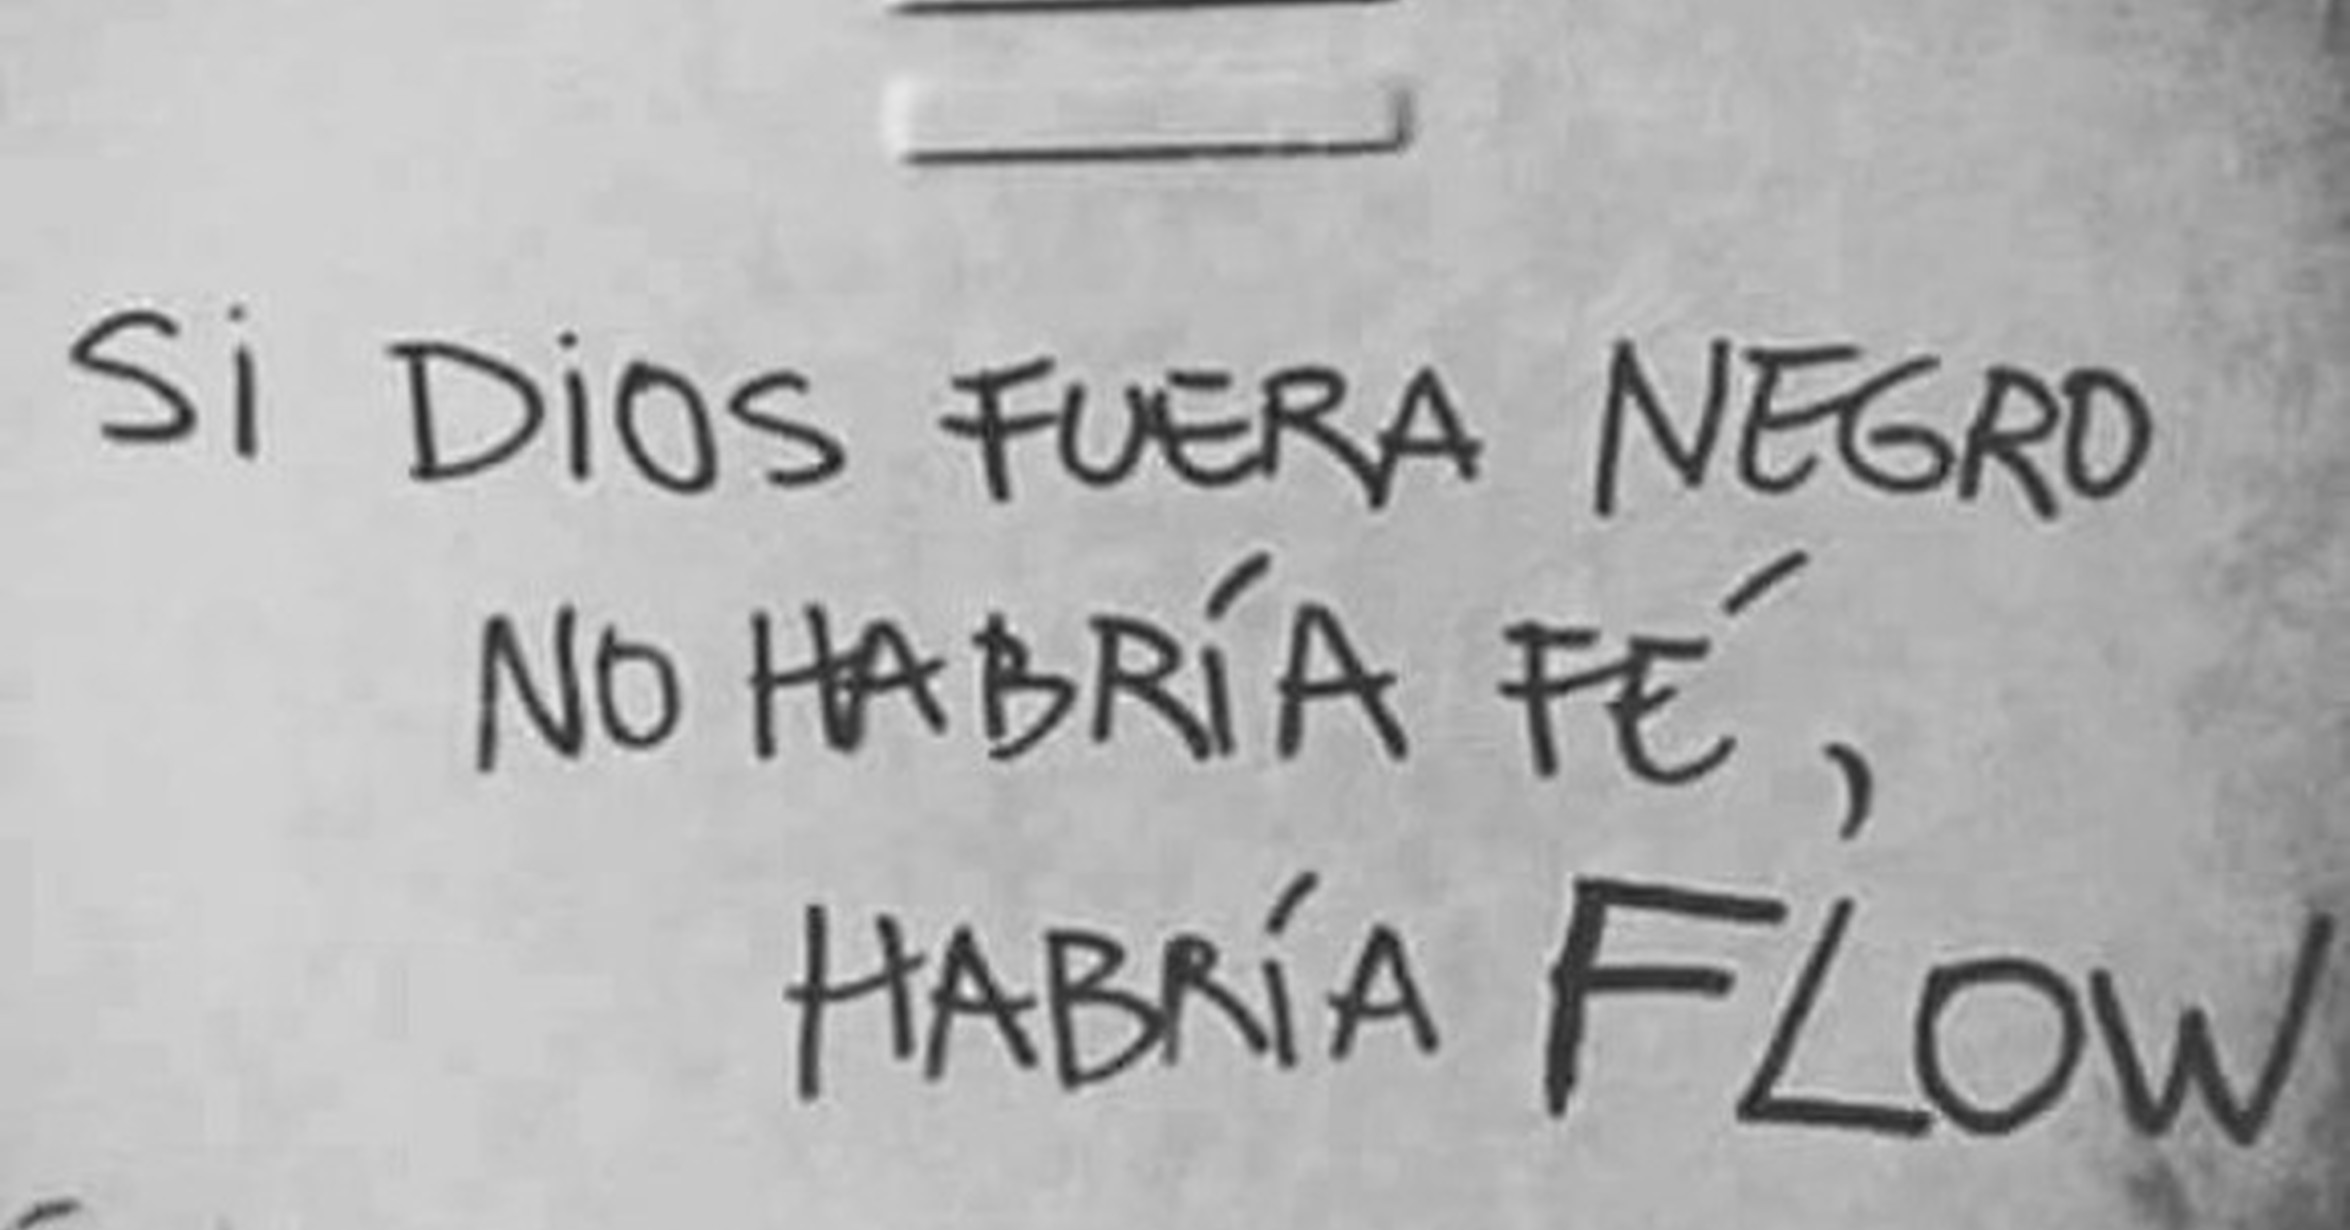 Si DiOS FUERA NEGRO
NO HABRÍA FÉ,
HABRÍA FLOW